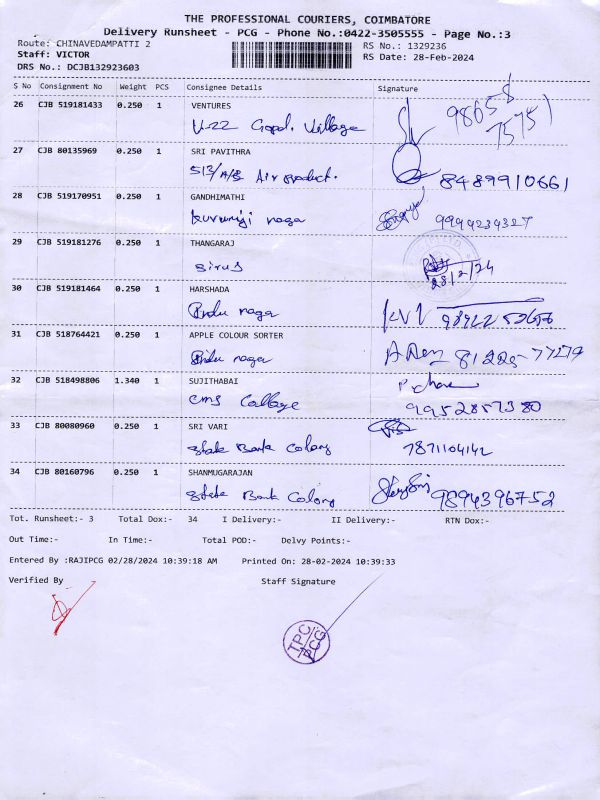 THE PROFESSIONAL COURIERS, COIMBATORE
Delivery Runsheet - PCG - Phone No.:0422-3505555 - Page No.:3
Route: CHINAVEDAMPATTI 2 RS No.: 1329236
Staff: VICTOR RS Date: 28-Feb-2024
DRS No.: DCJB132923603
S No Consignment No Weight PCS Consignee Details Signature
26 CJB 519181433 0.250 1 VENTURES
Village
27 CJB 80135969 0.250 1 SRI PAVITHRA
Air product. 8489910661
28 CJB 519170951 0.250 1 GANDHIMATHI
naga 9994239327
29 CJB 519181276 0.250 1 THANGARAJ
sirus 28/2/24
30 CJB 519181464 0.250 1 HARSHADA
naga
31 CJB 518764421 0.250 1 APPLE COLOUR SORTER
naga
32 CJB 518498806 1.340 1 SUJITHABAI
cms College 9952857380
33 CJB 80080960 0.250 1 SRI VARI
State Bank Colony 7871104142
34 CJB 80160796 0.250 1 SHANMUGARAJAN
State Bank Colony 9894396752
Tot. Runsheet:- 3 Total Dox:- 34 I Delivery:- II Delivery:- RTN Dox:-
Out Time:- In Time:- Total POD:- Delvy Points:-
Entered By :RAJIPCG 02/28/2024 10:39:18 AM Printed On: 28-02-2024 10:39:33
Verified By Staff Signature
TPC
PCG